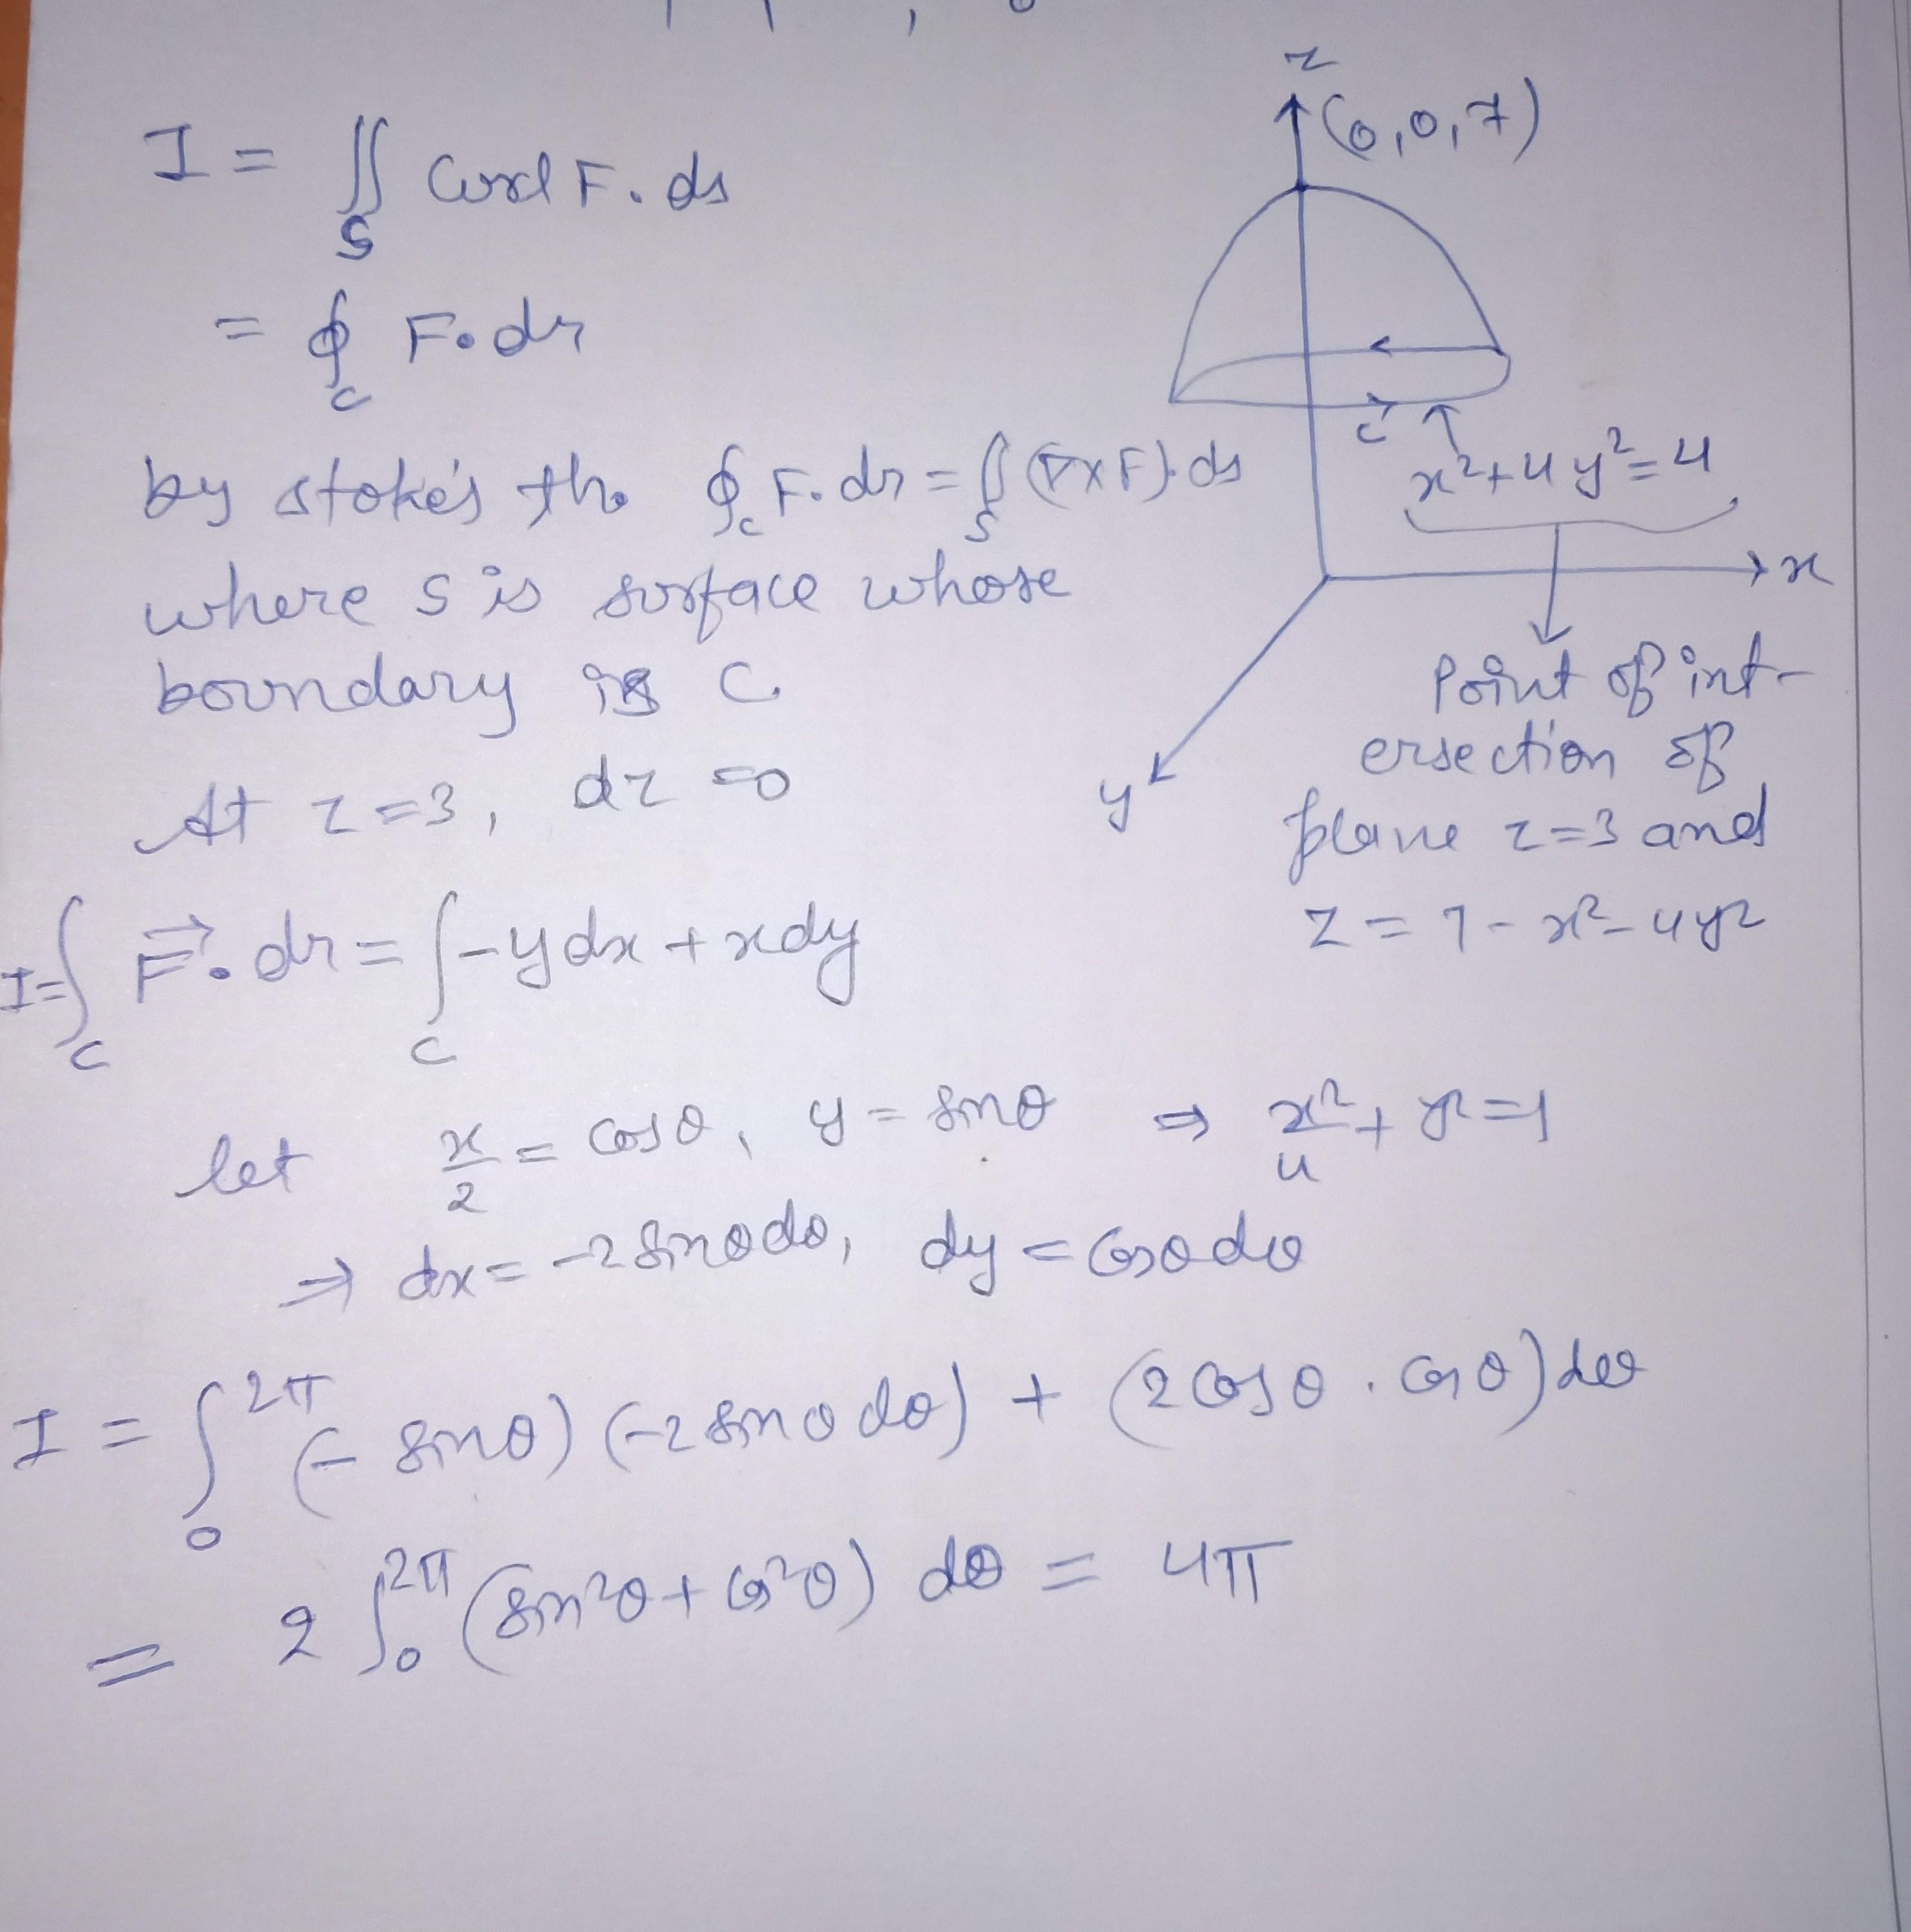 I = ∬_S Curl F. ds
= ∮_C F. dr
by stoke's th. ∮_C F. dr = ∬_S (∇×F). ds
where S is surface whose
boundary is C
At z=3, dz=0
I = ∫_C F⃗. dr = ∫_C -y dx + x dy
z
(0,0,7)
C
x²+4y²=4
x
y
Point of int-
ersection of
plane z=3 and
z = 7-x²-4y²
let x/2 = cosθ, y = sinθ ⇒ x²/4 + y² = 1
⇒ dx = -2 sinθ dθ, dy = cosθ dθ
I = ∫₀^2π (- sinθ) (-2 sinθ dθ) + (2 cosθ . cosθ) dθ
= 2 ∫₀^2π (sin²θ + cos²θ) dθ = 4π